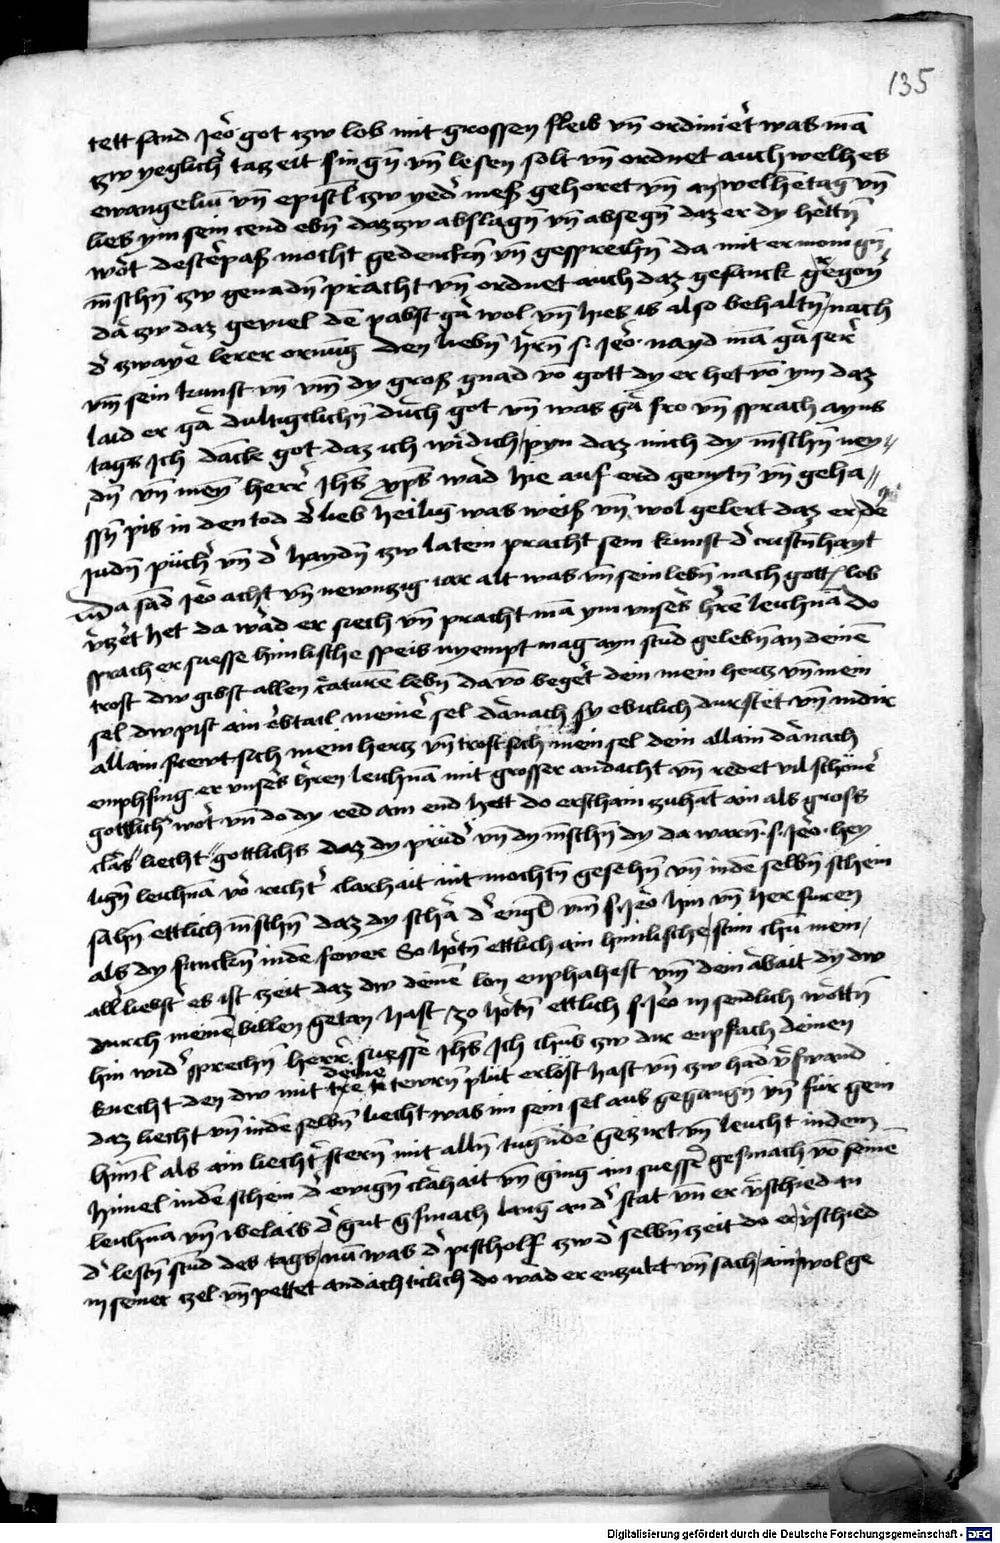 135
tett sand Jeȏ got czw lob mit grossen fleis vn̄ ordinier̄t was mā
zw yeglich̄ tagzeit singn̄ vn̄ lesen solt vn̄ ordnet auch welhes
ewangeliū vn̄ epistl̄ zw yed̄ meß gehoret vn̄ an welhē tag vn̄
lies ym sein cend ebn̄ dazzw abslagn̄ vn̄ absegn̄ daz er dy hertn̄
wȏt desterpaß mocht gedenckn̄ vn̄ gesprechn̄ da mit er
m̄schn̄ zw genadn̄ pracht vn̄ ordnet auch daz gesanck gregorȳ
dā zw daz geviel dē pabst gā wol vn̄ hies is also behaltn̄ nach
d̄ zwayē lerer ornūg den liebn̄ h̄rn̄ s. Jeȏ. nayd mā gā ser̄
vm̄ sein kunst vn̄ vm̄ dy groß gnad vō gott dy er het vō ym daz
laid er gā dultigclichn̄ duch got vn̄ was gā fro vn̄ sprach ayns
tags Ich danck got daz ich wirdich pyn daz mich dy m̄schn̄ ney⸗
dn̄ vn̄ meȳ herr̄ Jh̄s xp̄s wād hie auf erd genytn̄ vn̄ geha⸗
ssn̄ pis in den tod d̄ lieb heilig was weiß vn̄ wol gelert daz er de
Judn̄ puch̄ vn̄ d̄ haydn̄ zw latein pracht sein kunst d̄ cristn̄hayt
Da sād Jeȏ acht vn̄ newnzig iar alt was vn̄ sein lebn̄ nach gott lob
v̄zert het da wād er siech vn̄ pracht mā ym vnsers h̄rē leichnā do
sprach er suesse himlische speis nyempt mag ayn stūd gelebn̄ an deinē
trost dw gibst allen c̄aturē lebn̄ davō begert dein mein hertz vn̄ mein
sel dw pist ain erbtail meinē sel dānach sy ebiclich durstet vn̄ in dir
allain frewt sich mein hertz vn̄ trost sich mein sel dein allain dānach
enphfing er vnsers h̄ren leichnā mit grosser andacht vn̄ redet vil schönē
gottlich̄ wȏt vn̄ do dy red am end hett do erschain zuhāt ain als gross
clārs liecht gottlichs daz dy prūd̄ vn̄ dy m̄schn̄ dy da warn̄. s. Jeȏ. hey
lign̄ leichnā vō recht̄ clarhait nit mochtn̄ gesehn̄ vn̄ in dē selbn̄ schein
sahn̄ ettlich m̄schn̄ daz dy scha d̄ engl̄ vm̄ s. Jeȏ hin vn̄ her furen
als dy funckn̄ in dē fewer So hȏtn̄ ettlich ain himlische stim chū mein
all̄ liebst̄ es ist zeit daz dw deinē lon enphahest vm̄ dein ārbait dy dw
durch meinē willen getan hast zo hȏtn̄ ettlich s. Jeȏ in sendlich wȏttn̄
hin wid̄ sprechn̄ herr̄ suessē Jh̄s Ich chūb zw dir enpfach deinen
knecht den dw mit deinē tewrn̄ plut erlöst hast vn̄ zw hād v̄swand
daz liecht vn̄ in dē selbn̄ liecht was im sein sel aus gegangn̄ vn̄ für gein
himl̄ als ain liecht̄ stern̄ mit alln̄ tugn̄dē gezirt vn̄ leucht in dem
himel in dē schein d̄ ewign̄ clāhait vn̄ ging ain suesser gesmach vō seinē
leichnā vn̄ belaib d̄ gut gsmach lang an d̄ stat vn̄ er v̄schied an
d̄ lestn̄ stūd des tags nū was d̄ pischolf zw d̄ selbn̄ zeit do er v̄schied
in seiner zel vn̄ pettet andächticlich do wād er enzukt vn̄ sach ain wol ge
Digitalisierung gefördert durch die Deutsche Forschungsgemeinschaft - DFG